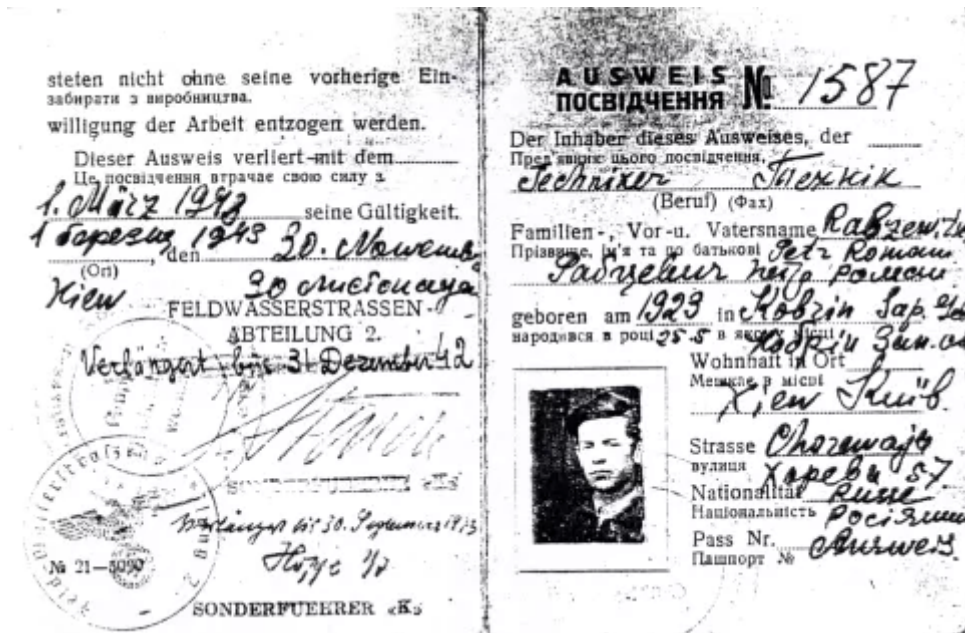 steten nicht ohne seine vorherige Ein-
забирати з виробництва.
willigung der Arbeit entzogen werden.
Dieser Ausweis verliert mit dem
Це посвідчення втрачає свою силу з
1. März 1943 seine Gültigkeit.
1 березня 1943, den 30. Novemb
(Ort)
Kiew 30 листопада
FELDWASSERSTRASSEN-
ABTEILUNG 2.
Verlängert bis 31 Dezember 42
Verlängert bis 30. September 1943
№ 21—5090
SONDERFUEHRER «K»
AUSWEIS
ПОСВІДЧЕННЯ № 1587
Der Inhaber dieses Ausweises, der
Пред'явник цього посвідчення,
Techniker Технік
(Beruf) (Фах)
Familien-, Vor-u. Vatersname Rabzewitsch
Прізвище, ім'я та по батькові Petr Roman
Рабцевич Роман
geboren am 1923 in Kobrin Sap.
народився в році 25.5 в Кобрин Зап.
Wohnhaft in Ort
Мешкає в місті
Kiew Київ.
Strasse
вулиця Хорева 57
Nationalität Russe
Національність Росіянин
Pass Nr. Ausweis.
Пашпорт №